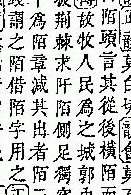 陌頭言其從後橫陌而
故牧人民爲之城郭
被荆棘求阡陌側足獨
爲陌章減其出者陌
謂之陌借陌字用之